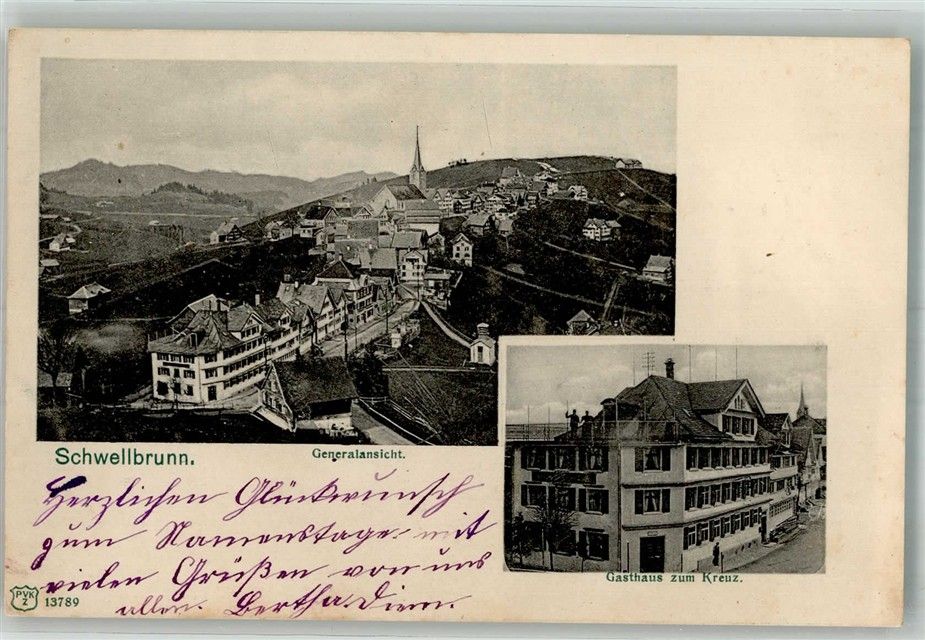 Schwellbrunn.
Generalansicht.
Gasthaus zum Kreuz.
Herzlichen Glückwunsch
zum Namenstage mit
vielen Grüßen von uns
allen. Bertha Diem.
PVK
Z
13789